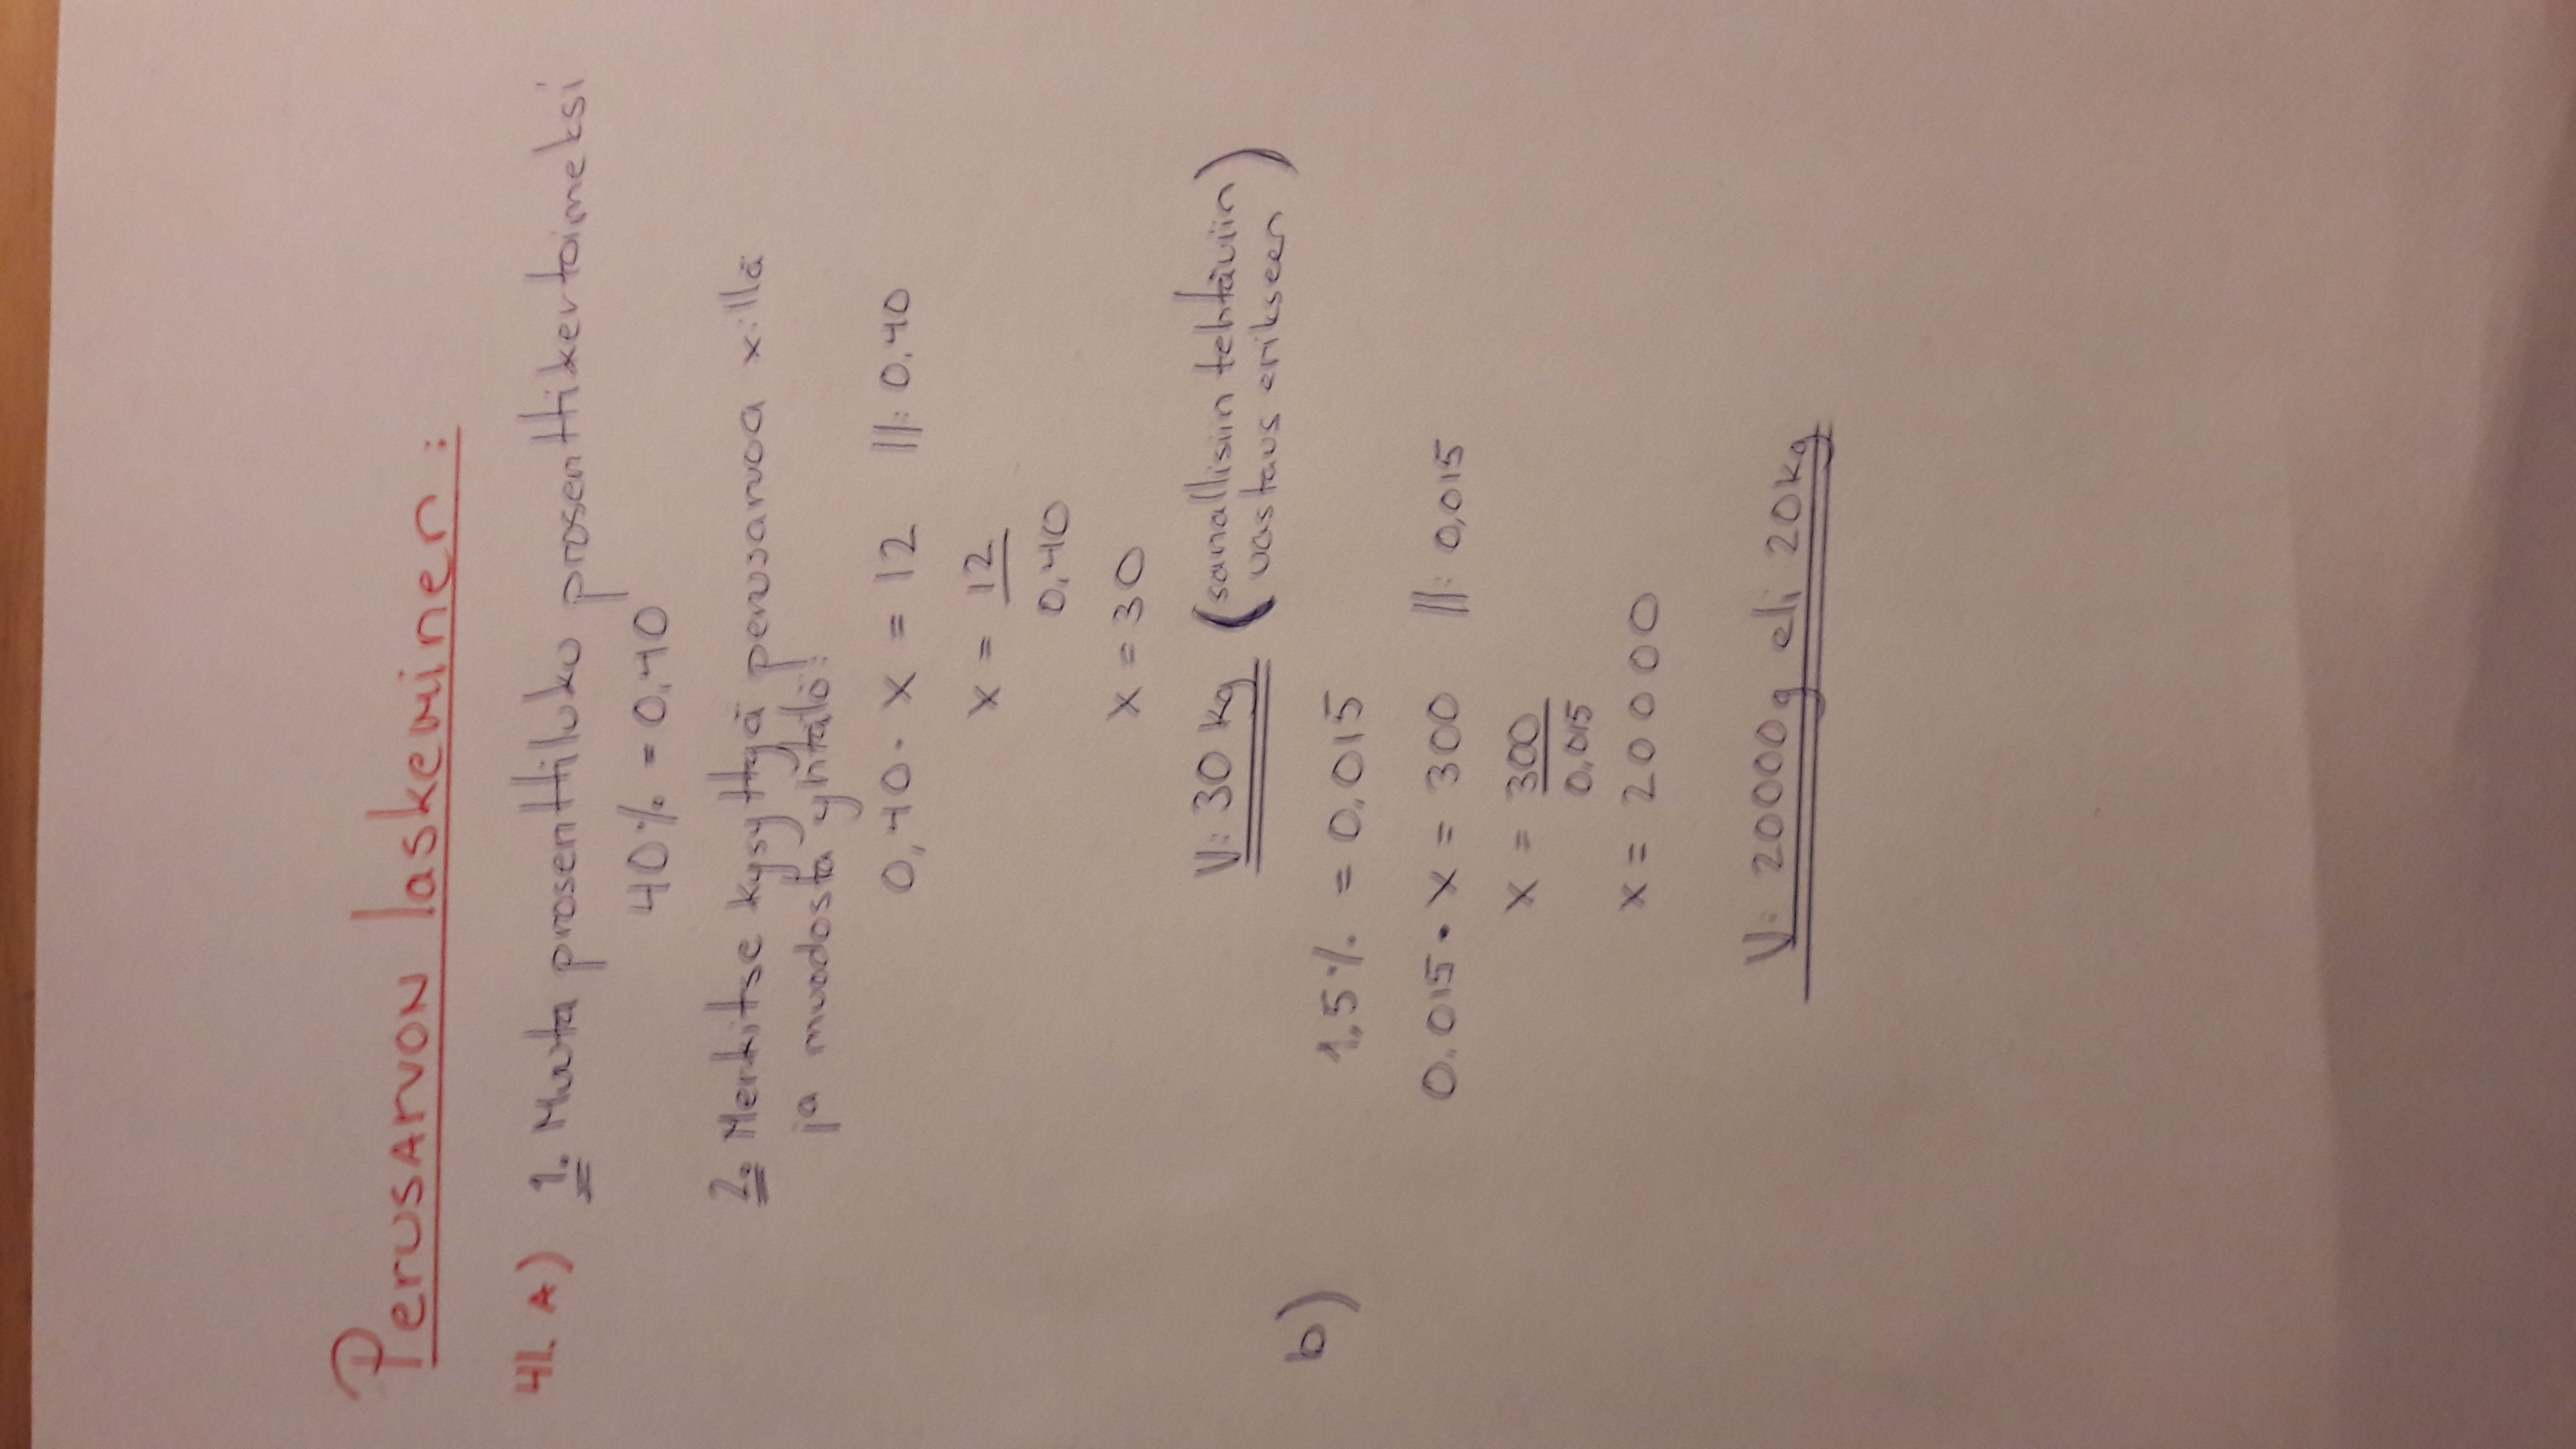 Perusarvon laskeminen:
41. A) 1. Muuta prosenttiluku prosenttikertoimeksi
40% = 0,40
2. Merkitse kysyttyä perusarvoa x:illä
ja muodosta yhtälö:
0,40 · x = 12 ||: 0,40
x = 12
0,40
x = 30
V: 30 kg (sanallisiin tehtäviin
vastaus erikseen)
b) 1,5% = 0,015
0,015 · x = 300 ||: 0,015
x = 300
0,015
x = 20000
V: 20000g eli 20kg